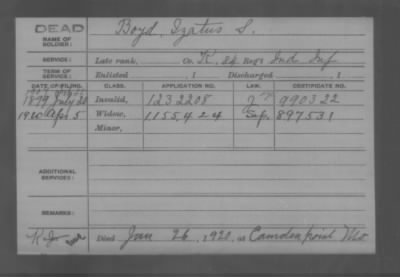 DEAD
NAME OF SOLDIER: Boyd, Izatus S.
SERVICE: Late rank, Co. K, 84 Reg't Ind Inf
TERM OF SERVICE: Enlisted , 1 Discharged , 1
DATE OF FILING. CLASS. APPLICATION NO. LAW. CERTIFICATE NO.
1899 July 20 Invalid, 1232208 990322
1920 Apr 5 Widow, 1155424 897531
Minor,
ADDITIONAL SERVICES:
REMARKS:
Died Jan 26, 1920, at Camden point Mo